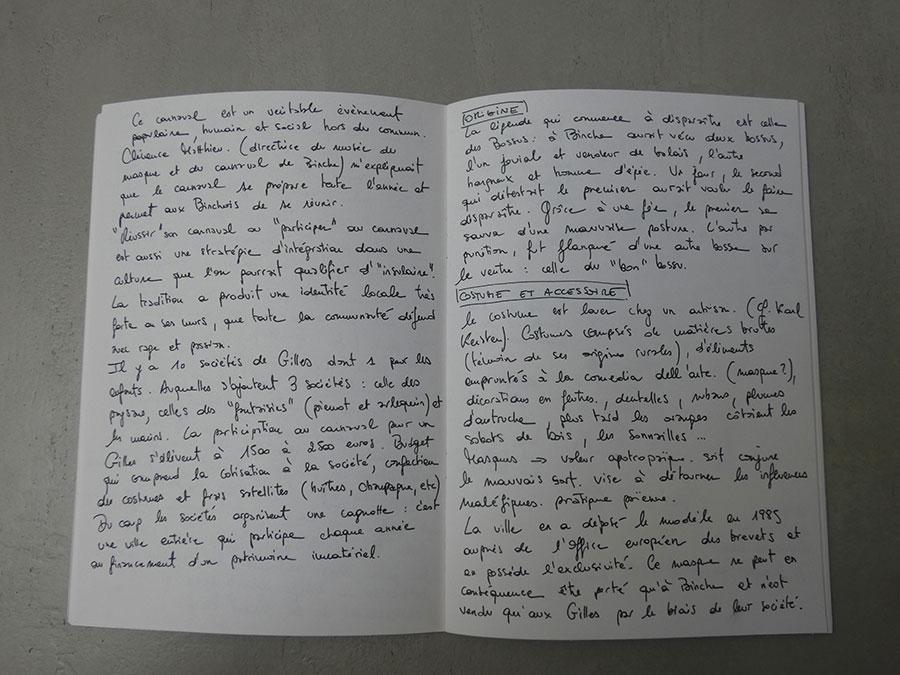 Ce carnaval est un véritable évènement
populaire, humain et social hors du commun.
Clémence Matthieu. (directrice du musée du
masque et du carnaval de Binche) m'expliquait
que le carnaval se prépare toute l'année et
permet aux Binchois de se réunir.
"Réussir" son carnaval ou "participer" au carnaval
est aussi une stratégie d'intégration dans une
culture que l'on pourrait qualifier d'"insulaire".
La tradition a produit une identité locale très
forte a ses murs, que toute la communauté défend
avec rage et passion.
Il y a 10 sociétés de Gilles dont 1 pour les
enfants. Auxquelles s'ajoutent 3 sociétés : celle des
paysans, celles des "fantaisies" (pierrot et arlequin) et
les marins. La participation au carnaval pour un
Gilles s'élèvent à 1500 à 2500 euros. Budget
qui comprend la cotisation à la société, confection
des costumes et frais satellites (huîtres, champagne, etc)
Du coup les sociétés organisent une cagnotte : c'est
une ville entière qui participe chaque année
au financement d'un patrimoine immatériel.
ORIGINE
La légende qui commence à disparaître est celle
des Bossus : à Binche aurait vécu deux bossus,
l'un jovial et vendeur de balais, l'autre
hargneux et homme d'épée. Un jour, le second
qui détestait le premier aurait voulu le faire
disparaître. Grâce à une fée, le premier se
sauva d'une mauvaise posture. L'autre par
punition, fut flanqué d'une autre bosse sur
le ventre : celle du "bon" bossu.
COSTUME ET ACCESSOIRE
le costume est louer chez un artisan. (Cf. Karl
Kersten). Costumes composés de matières brutes
(témoin de ses origines rurales), d'éléments
empruntés à la comedia dell'arte. (masque?),
décorations en feutres, dentelles, rubans, plumes
d'autruche, plus tard les oranges côtoient les
sabots de bois, les sonnailles ...
Masques ⇒ valeur apotropaïque. soit conjure
le mauvais sort. vise à détourner les influences
maléfiques. pratique païenne.
La ville en a déposé le modèle en 1985
auprès de l'Office européen des brevets et
en possède l'exclusivité. Ce masque ne peut en
conséquence être porté qu'à Binche et n'est
vendu qu'aux Gilles par le biais de leur société.